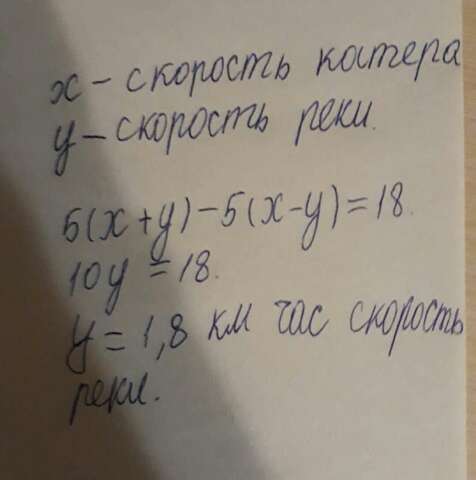 x – скорость катера
y – скорость реки.
5(x+y)–5(x–y)=18.
10y = 18.
y = 1,8 км час скорость
реки.